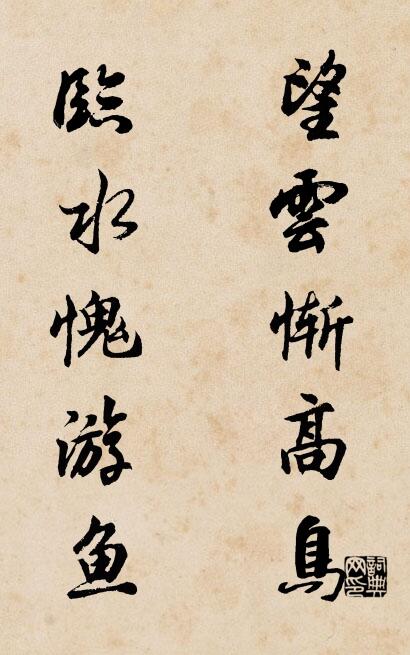 望雲慚高鳥
臨水愧游魚
詞典
网印